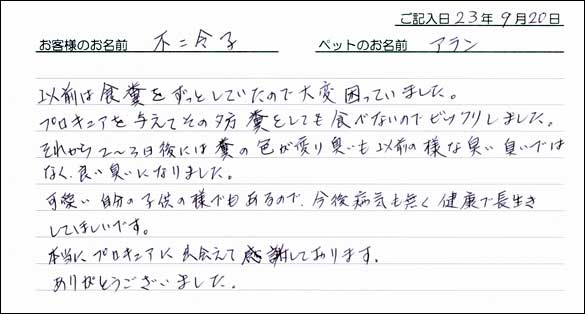 ご記入日 23年 9月20日
お客様のお名前 不二令子 ペットのお名前 アラン
以前は食糞をずっとしていたので大変困っていました。
プロキュアを与えてその夕方糞をしても食べないのでビックリしました。
それから2〜3日後には糞の色が変り臭いも以前の様な臭い臭いでは
なく、良い臭いになりました。
可愛い自分の子供の様でもあるので、今後病気も無く健康で長生き
してほしいです。
本当にプロキュアに出会えて感謝しております。
ありがとうございました。